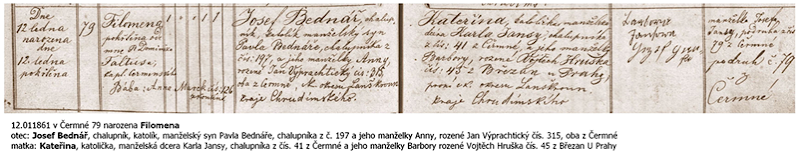 Dne
12 ledna
narozena
dne
12 ledna
pokřtěna
79
Filomena
pokřtěna od
Faltusa,
kapl. čermenského
Bába: Anna Marek čís: 126
Josef Bednář, chalup-
ník, katolík, manželský syn
Pavla Bednáře, chalupníka z
čís: 197, a jeho manželky Anny,
rozené Jan Výprachtický čís: 315
oba z Čermné, okresu Lanškroun
kraje Chrudimského.
Kateřina, katolička, manželská
dcera Karla Jansy, chalupníka
z čís: 41 z Čermné, a jeho manželky
Barbory, rozené Vojtěch Hruška
čís: 45 z Březan u Prahy,
okresu Lanškroun
kraje Chrudimského
Barbora
Jansova
Josef
manželka Josefa
Jansy,
79 z Čermné
podruh č. 79
Čermné
12.011861 v Čermné 79 narozena Filomena
otec: Josef Bednář, chalupník, katolík, manželský syn Pavla Bednáře, chalupníka z č. 197 a jeho manželky Anny, rozené Jan Výprachtický čís. 315, oba z Čermné
matka: Kateřina, katolička, manželská dcera Karla Jansy, chalupníka z čís. 41 z Čermné a jeho manželky Barbory rozené Vojtěch Hruška čís. 45 z Březan U Prahy